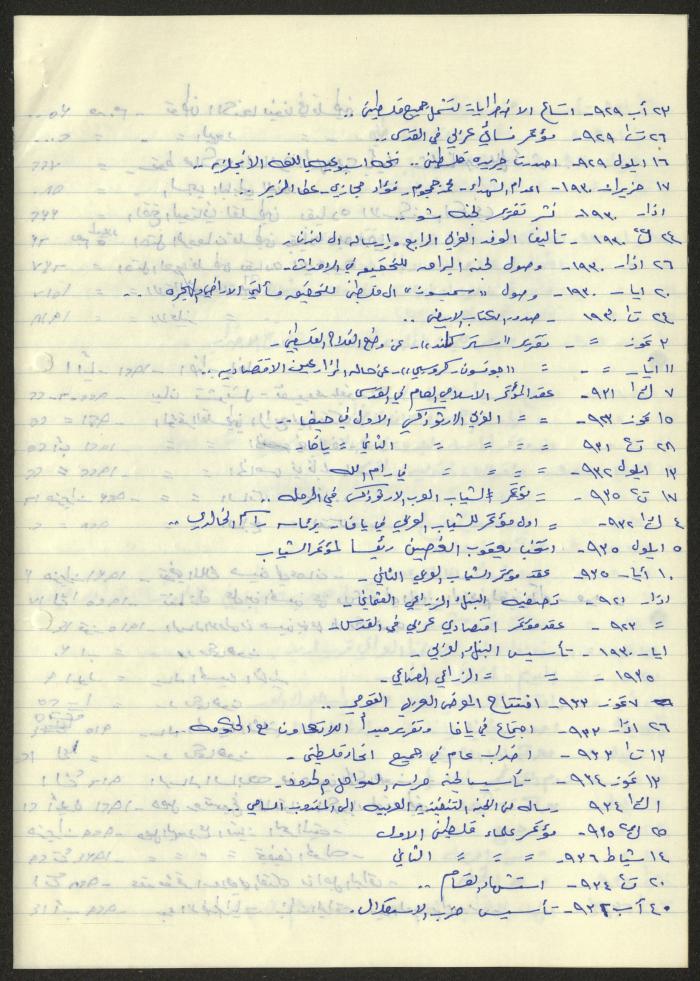 ٢٣ آب ٩٢٩- اتساع الاضطرابات لتشمل جميع فلسطين ..
٢٦ ت١ ٩٢٩- مؤتمر نسائي عربي في القدس ..
١٦ ايلول ٩٢٩- اصدرت جريدة فلسطين .. نسخة اسبوعية باللغة الانجليزية ..
١٧ حزيران ٩٣٠- اعدام الشهداء- محمد جمجوم- فؤاد حجازي- عطا الزير-
اذار ٩٣٠- نشر تقرير لجنة شو-
٩٣٠- تأليف الوفد العربي الرابع وارساله الى لندن-
٢٦ اذار ٩٣٠- وصول لجنة البراق للتحقيق في
٢٠ ايار- ٩٣٠- وصول "سمبسون" الى فلسطين للتحقيق مسألتي الاراضي والهجرة ..
٢٤ ت١ ٩٣٠- صدور الكتاب الابيض ..
٢ تموز = - تقرير - عن وضع الفلاح الفلسطيني-
١١ أيار- = - = "جونسون- كروسبي"- عن حالة المزارعين الاقتصادية ..
٧ ك١ ٩٣١- عقد المؤتمر الاسلامي العام في القدس
١٥ تموز ٩٣٠- = = العربي الارثوذكسي الاول في حيفا ..
٢٨ ت٢ ٩٣١- = = = = الثاني = يافا
١٣ ايلول ٩٣٢- = = = = في رام الله
١٧ ت٢ ٩٣٥- = مؤتمر الشباب العرب الارثوذكس في الرملة ..
٤ ك٢ ٩٣٢- = اول مؤتمر للشباب العربي في يافا- برئاسة الخالدي ..
٥ ايلول ٩٣٥- انتخب يعقوب الغصين رئيسا لمؤتمر الشباب
١٠ أيار- ٩٣٥- عقد مؤتمر الشباب العربي الثاني-
اذار ٩٢١- تصفية البنك الزراعي العثماني-
= ٩٢٣- عقد مؤتمر اقتصادي عربي في القدس-
ايار- ٩٣٠- تأسيس البنك العربي-
١٩٣٥- = = الزراعي الصناعي-
٧ تموز- ٩٣٣- افتتاح المعرض العربي القومي ..
٢٦ اذار ٩٣٣- اجتماع في يافا وتقرير مبدأ اللاتعاون مع الحكومة ..
١٣ ت١ ٩٣٣- اضراب عام في جميع انحاء فلسطين-
١٣ تموز ٩٣٤- تأسيس لجنة حراسة السواحل والحدود-
١ ك١ ٩٣٤ رسالة من اللجنة التنفيذية العربية الى المندوب السامي
٢٥ ك٢ ٩٣٥- مؤتمر علماء فلسطين الاول
١٤ شباط ٩٣٦- = = = الثاني
٢٠ ت٢ ٩٣٤- استشهاد القسام ..
٤ آب ٩٣٢- تأسيس حزب الاستقلال.